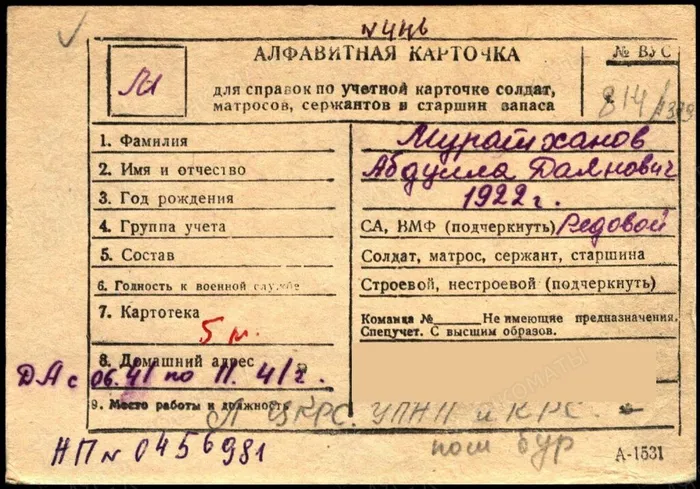 АЛФАВИТНАЯ КАРТОЧКА
№ ВУС
М
для справок по учетной карточке солдат,
матросов, сержантов и старшин запаса
814/
1. Фамилия
Муратханов
2. Имя и отчество
Абдулла Даянович
3. Год рождения
1922 г.
4. Группа учета
СА, ВМФ (подчеркнуть) Редовой
5. Состав
Солдат, матрос, сержант, старшина
6. Годность к военной службе
Строевой, нестроевой (подчеркнуть)
7. Картотека
5 м.
Команда № Не имеющие предназначения.
Спецучет. С высшим образов.
8. Домашний адрес
ДА с 06.41 по 11.41 г.
9. Место работы и должность
ЦКРС. УПНП и КРС.
НП № 0456981
пом бур
А-1531